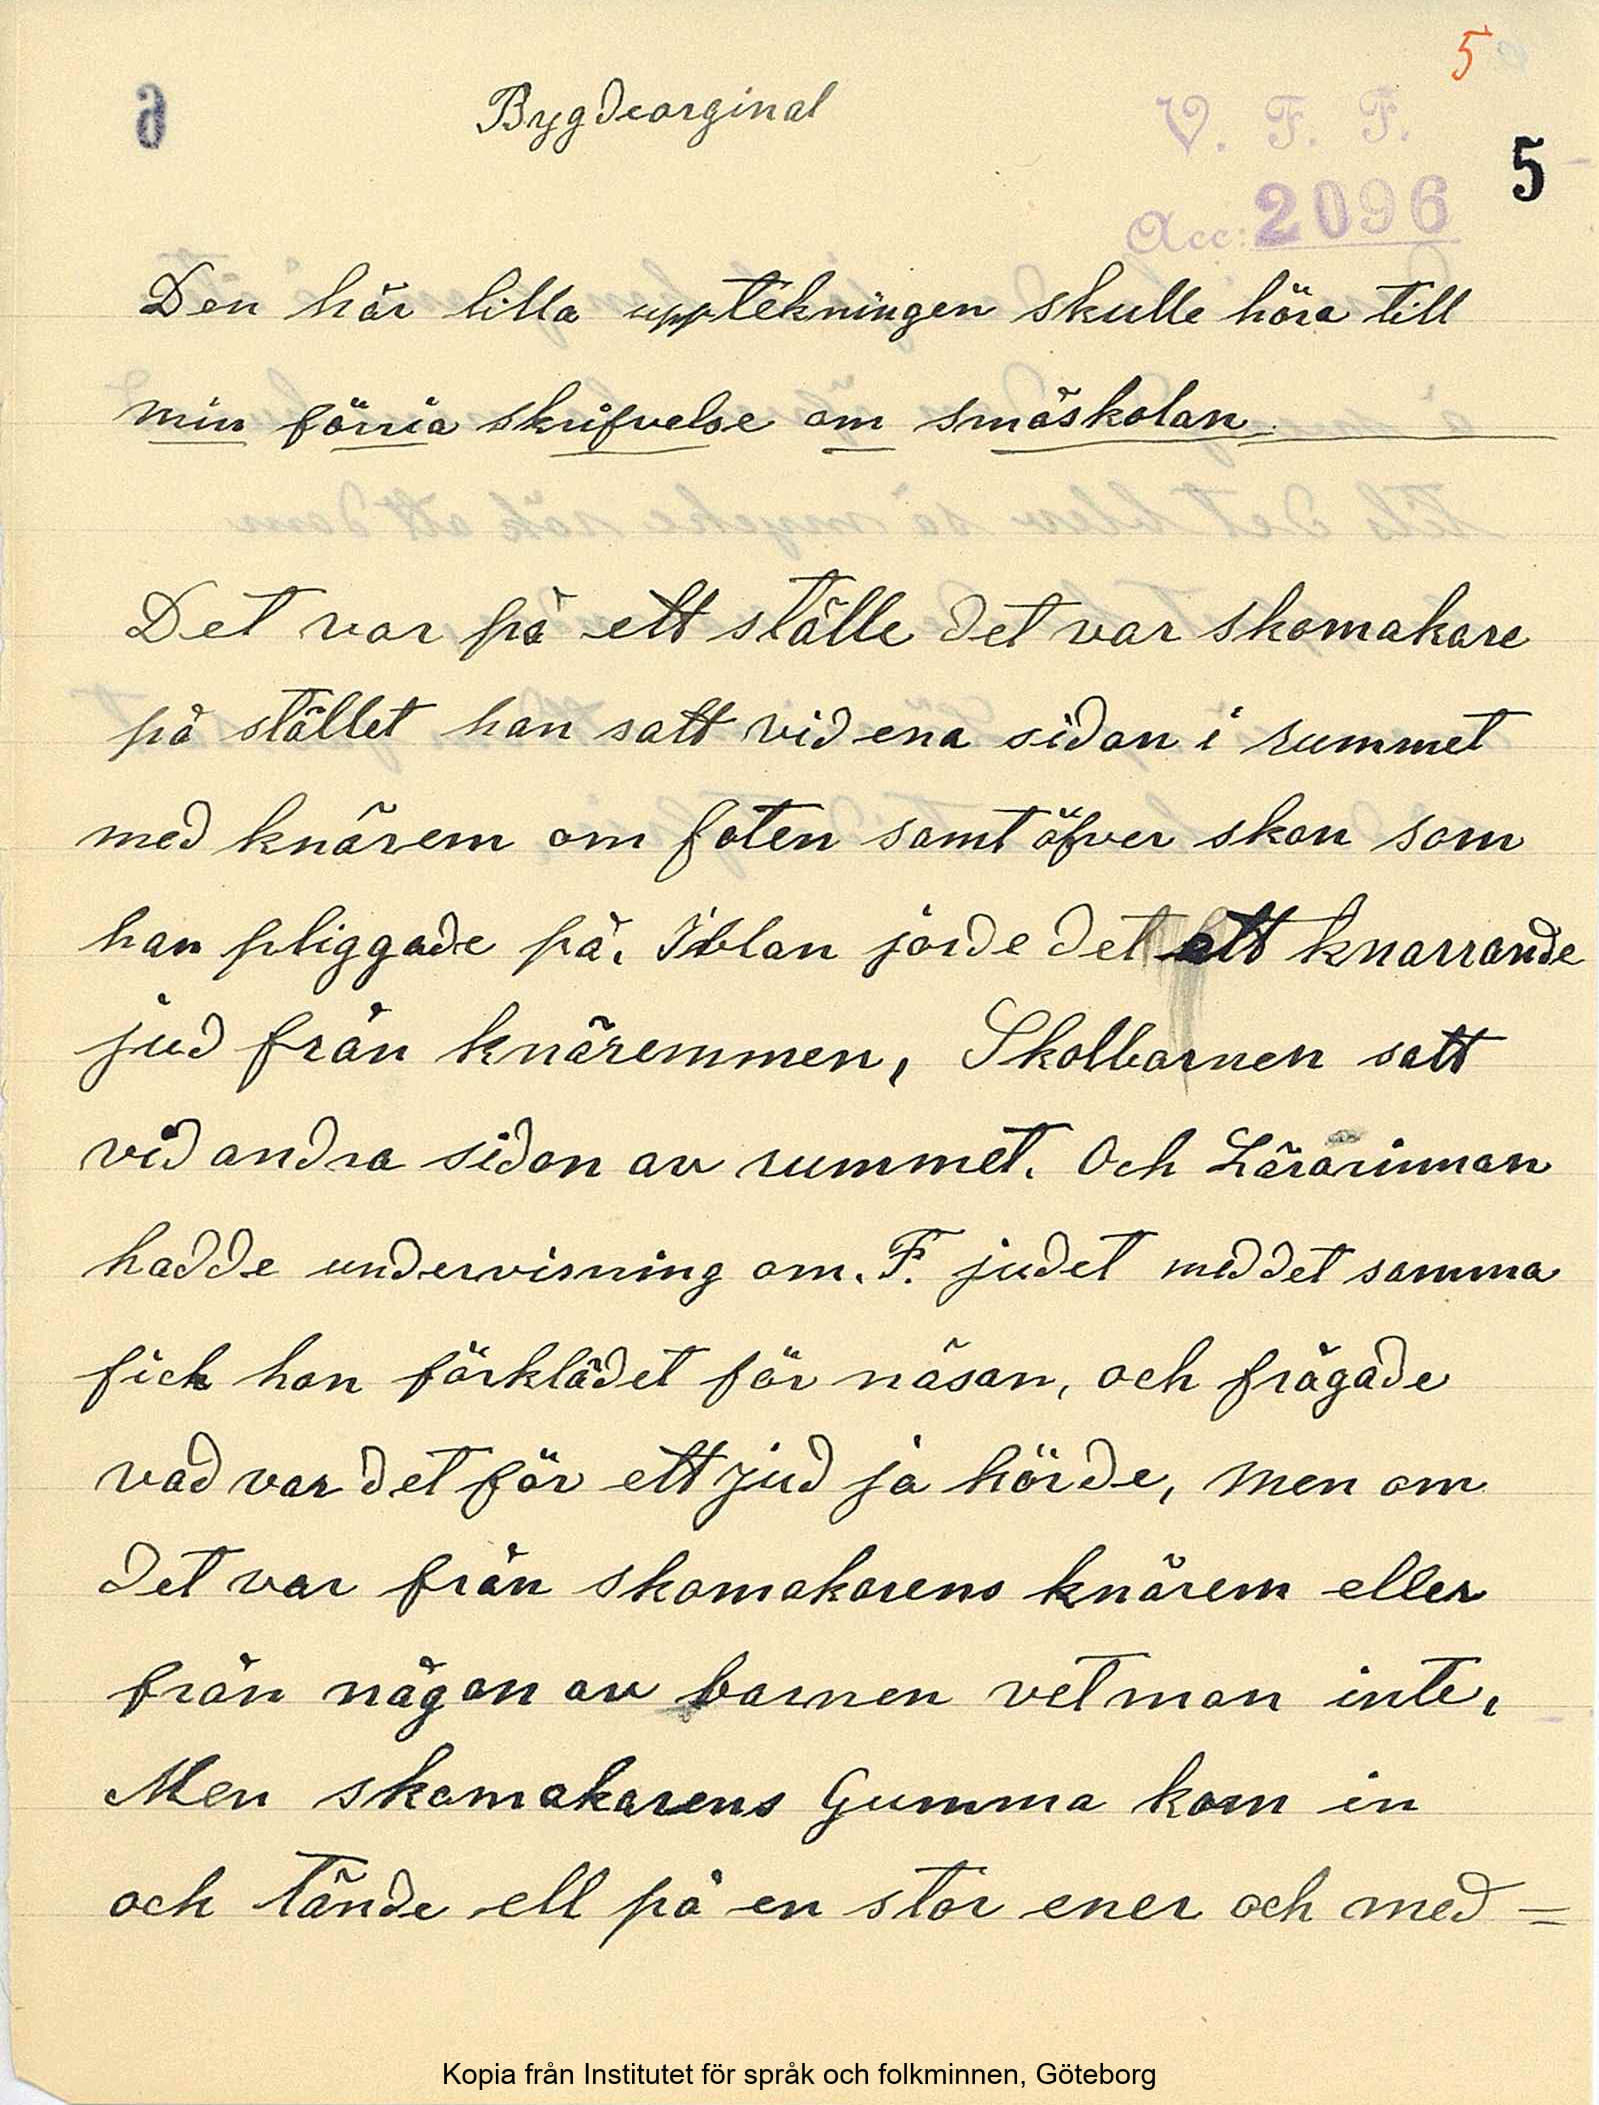 5
Bygdeorginal
V. F. F.
5
Acc: 2096
Den här lilla upptekningen skulle höra till
min förria skrifvelse om småskolan
Det var på ett ställe det var skomakare
på stället han satt vid ena sidan i rummet
med knärem om foten samt öfver skon som
han pliggade på. Iblan jorde det ett knarrande
jud från knäremmen, Skolbarnen satt
vid andra sidan av rummet. Och Lärarinnan
hadde undervisning om. F. judet med det samma
fick hon förklädet för näsan, och frågade
vad var det för ett jud ja hörde, men om
det var från skomakarens knärem eller
från någon av barnen vet man inte,
Men skomakarens Gumma kom in
och tände ell på en stor ener och med =
Kopia från Institutet för språk och folkminnen, Göteborg